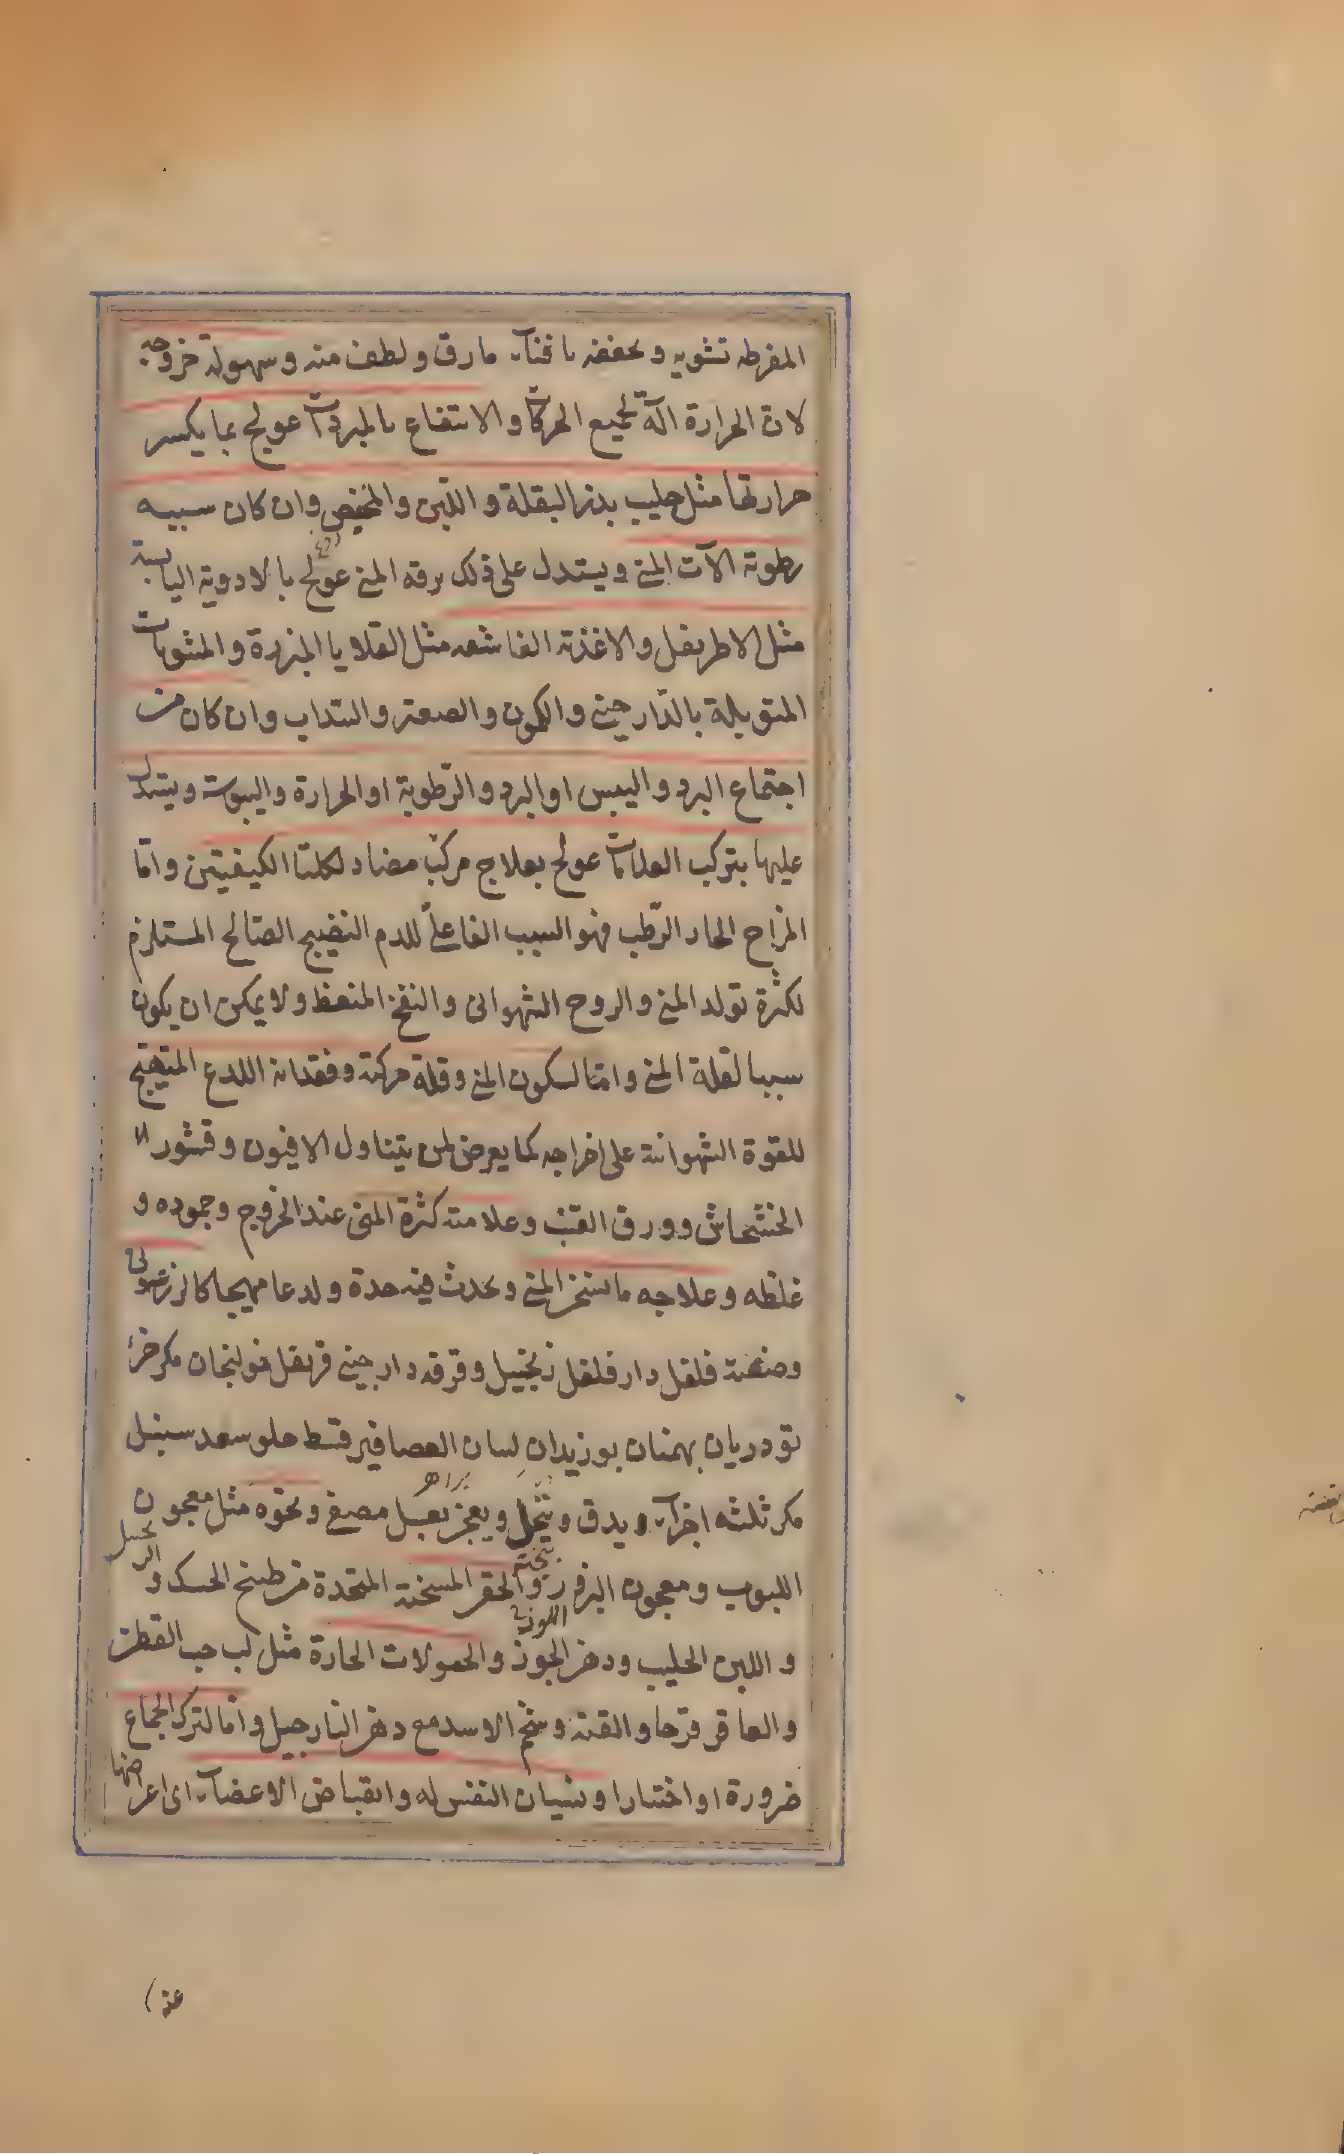 المفرطه تشويه و تجففه بافناء مارق و لطف منه و سهولة خروجه
لان الحرارة الة لجميع الحركات و الانتفاع بالمبردات عولج بما يكسر
حرارتها مثل حليب بذر البقلة و اللبن و المخيض وان كان سببه
رطوبة الآت المنى و يستدل على ذلك برقه المنى عولج بالادوية اليابسة
مثل الاطريفل و الاغذية الناشفه مثل القلايا المبزرة و المشويات
المتوبلة بالدارچينى و الكمون و الصعتر و السداب وان كان من
اجتماع البرد و اليبس او البرد و الرطوبة او الحرارة و اليبوسة و يستدل
عليها بتركب العلامات عولج بعلاج مركب مضاد لكلتا الكيفيتين و اما
المزاج الحار الرطب فهو السبب الفاعلى للدم النضيج الصالح المستلزم
لكثرة تولد المنى و الروح الشهوانى و النفخ المنعظ و لا يمكن ان يكون
سببا لقلة المنى و اما لسكون المنى و قلة حركته و فقدانه اللدع المتهيج
للقوة الشهوانية على اخراجه كما يعرض لمن يتناول الافيون و قشور ال
الخشخاش و ورق القنب و علامته كثرة المنى عند الخروج و جموده و
غلظه و علاجه ما يسخن المنى و يحدث فيه حدة و لدعا مهيجا كالزرعونى
و صنعته فلفل دار فلفل زنجبيل و قرفه دارچينى قرنفل خولنجان مكد جزء
تودريان بهمنان بوزيدان لسان العصافير قسط حلو سعد سنبل
مكد ثلثه اجزاء و يدق و ينخل و يعجن بعسل مصفى و نحوه مثل معجون
اللبوب و معجون البزور و الحقن المسخنة المتخذة من طبيخ الحسك و
الزنجبيل
و اللبن الحليب و دهن الجوز و الحمولات الحارة مثل لب حب القطن
اللوز
و العاقر قرحا و القنه و شحم الاسد مع دهن النارجيل و اما لترك الجماع
ضرورة او اختيارا و نسيان النفس له و انقباض الاعضاء اى اعراضها
عنه